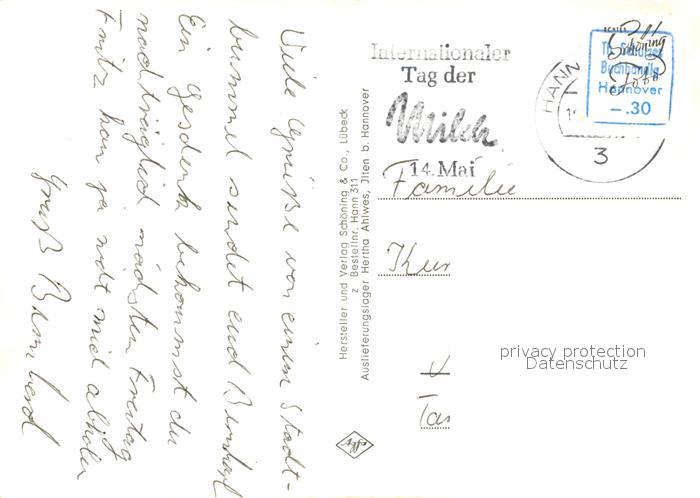 Viele Grüße von einem Stadt-
bummel sendet euch Bernhard
Ein Geschenk bekommst du
nachträglich nächsten Freitag
Fritz kan ja mich abholen
Gruß Bernhard
Hersteller und Verlag Schöning & Co., Lübeck
z Bestellnr. Hann 311
Auslieferungslager Hertha Ahlwes, Ilten b. Hannover
Agfa
Internationaler
Tag der
Milch
14. Mai
HANN
3
Schöning
Foto
Buchhandlg
Hannover
-.30
Familie
privacy protection
Datenschutz